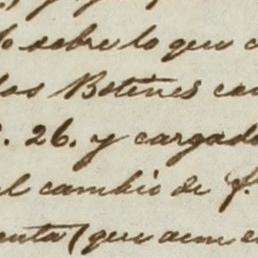 sobre lo que
los Botines
26. y cargado
el cambio de f.
(que aun